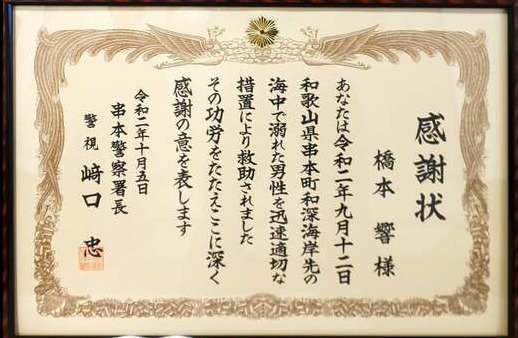 感謝状
橋本 響 様
あなたは令和二年九月十二日
和歌山県串本町和深海岸先の
海中で溺れた男性を迅速適切な
措置により救助されました
その功労をたたえここに深く
感謝の意を表します
令和二年十月五日
串本警察署長
警視 﨑口 忠